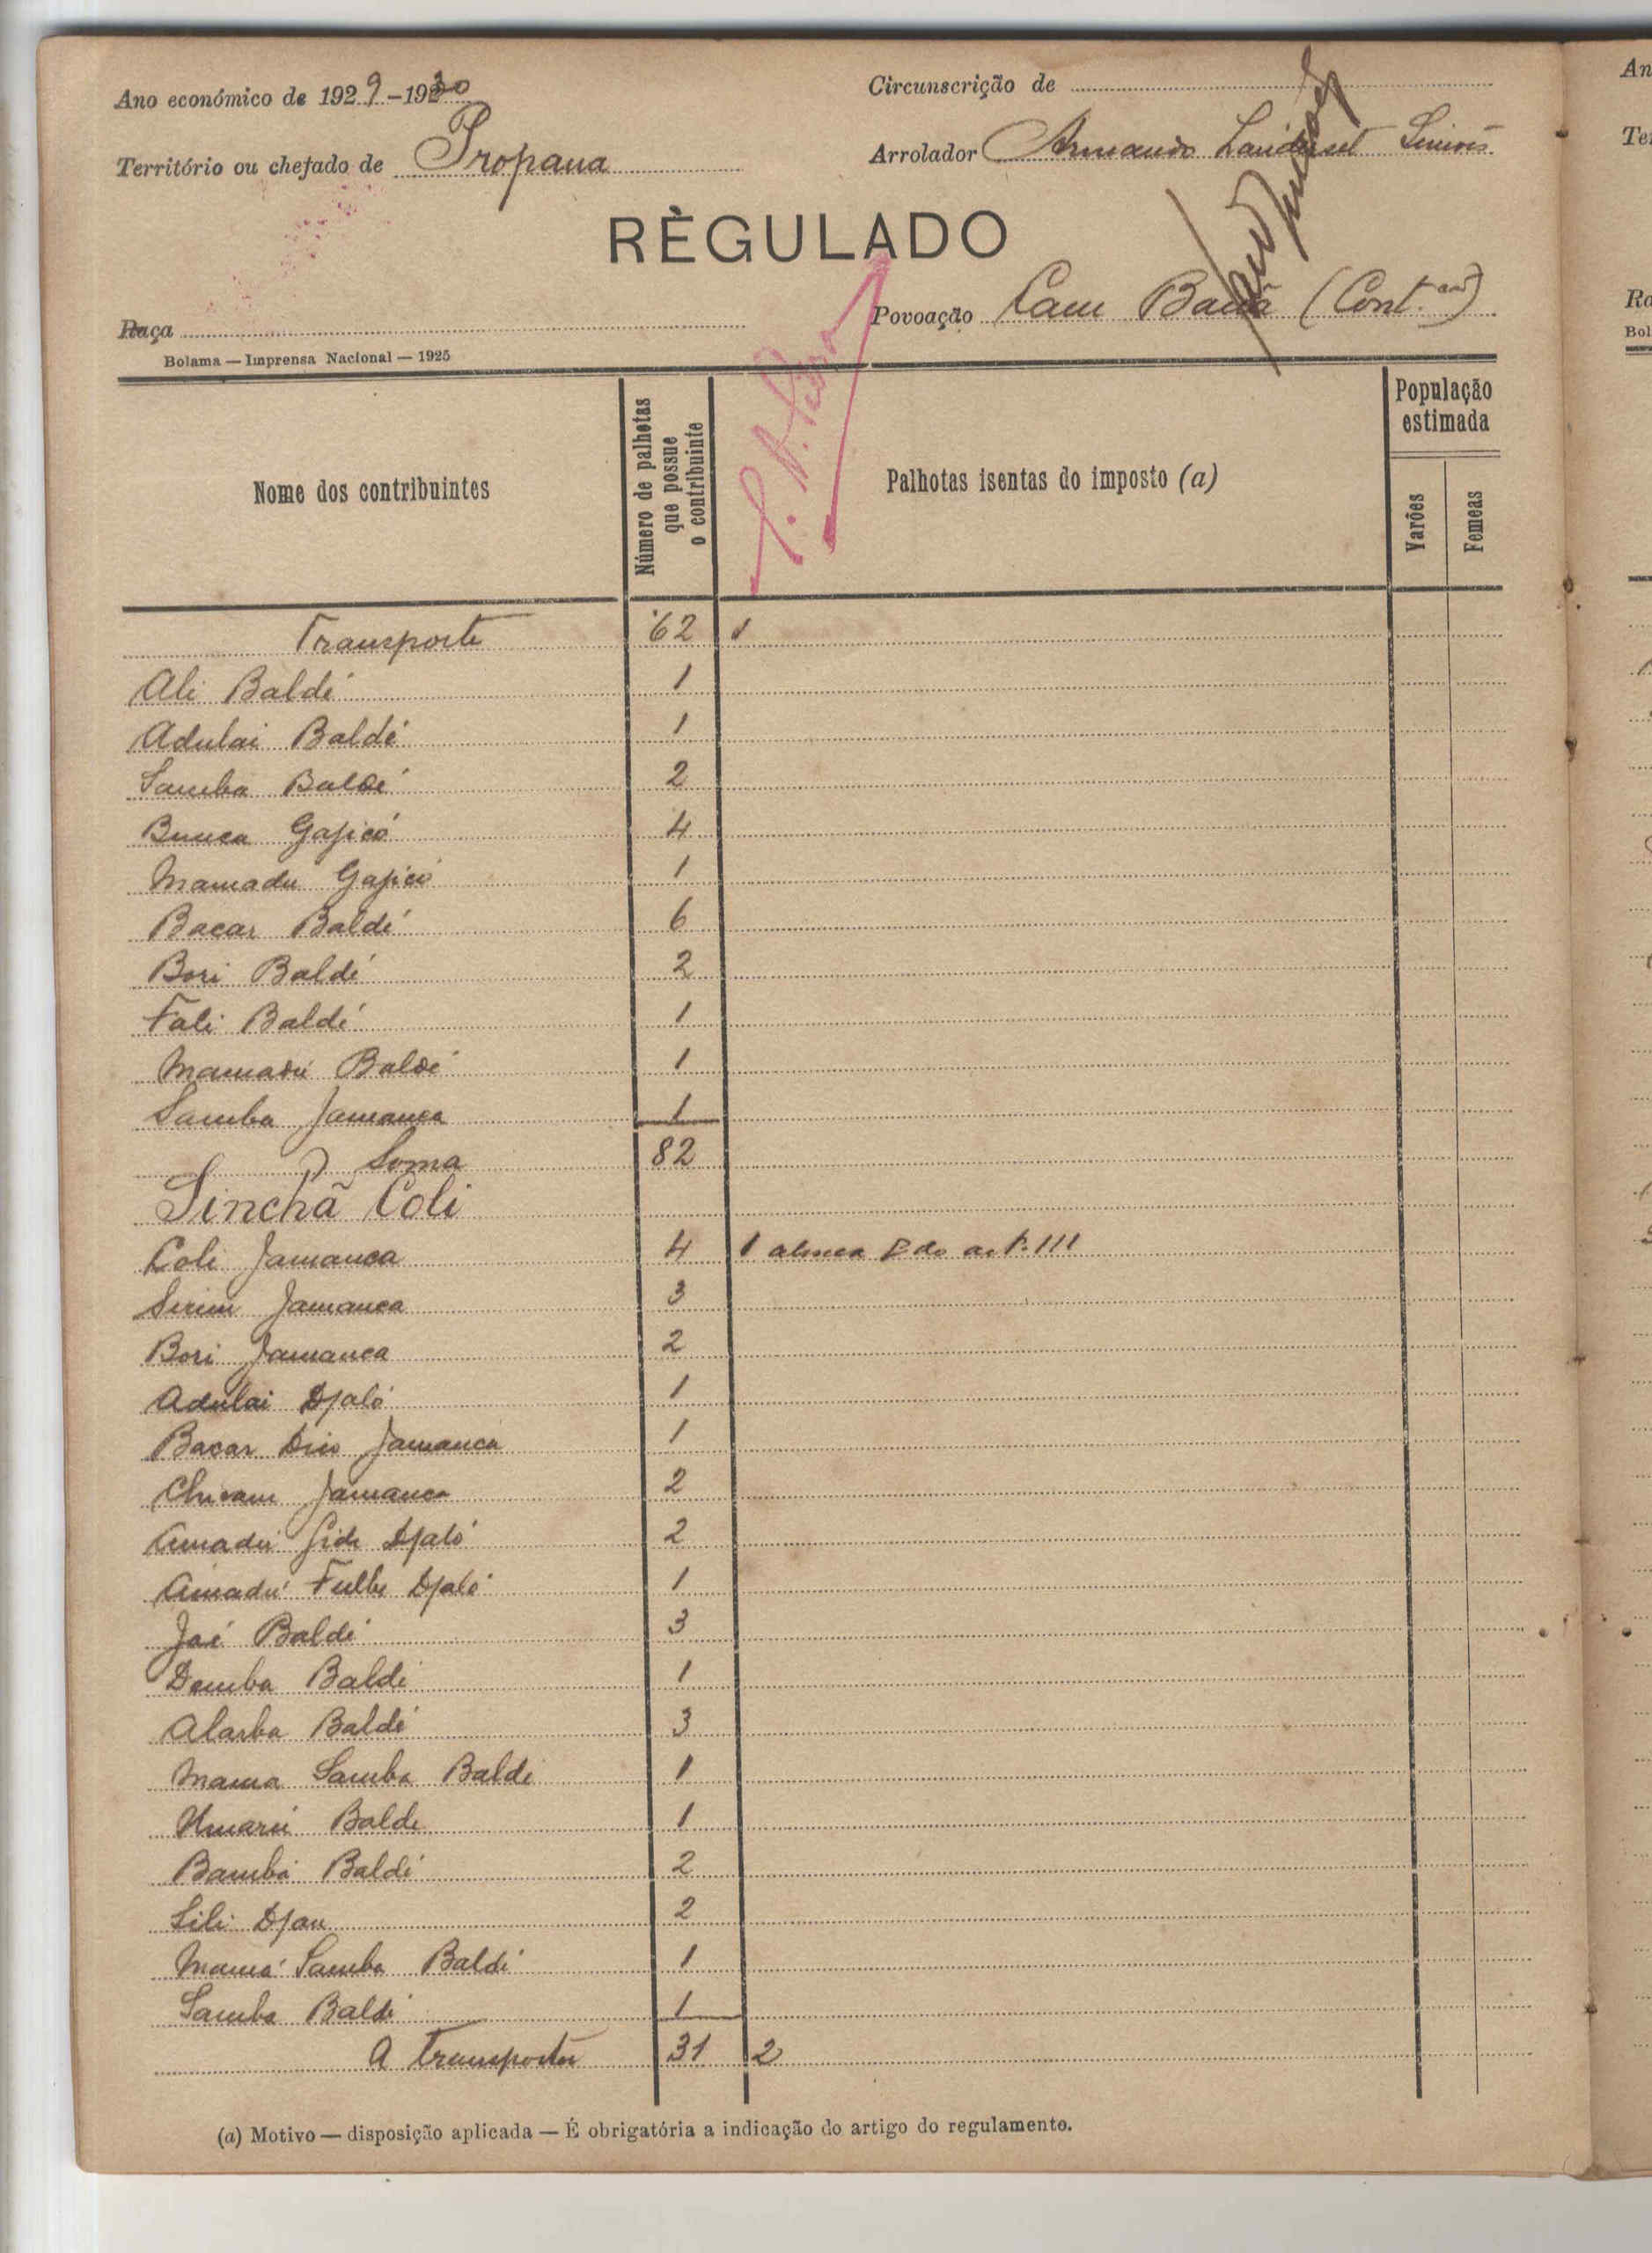 Ano económico de 1929-1930
Circunscrição de
Território ou chefado de Propana
Arrolador Armando Simões
RÈGULADO
Raça
Povoação Cam Baná (Cont.)
Bolama — Imprensa Nacional — 1925
Nome dos contribuintes
Número de palhotas que possue o contribuinte
Palhotas isentas do imposto (a)
População estimada
Varões
Femeas
Transporte 62 1
Ali Baldé 1
Adulai Baldé 1
Samba Baldé 2
Bunca Gajicó 4
Mamadu Gajicó 1
Bacar Baldé 6
Bori Baldé 2
Fali Baldé 1
Mamadú Baldé 1
Samba Jamanca 1
Soma 82
Sinchã Coli
Coli Jamanca 4 1 alinea do art. 111
Jamanca 3
Bori Jamanca 2
Adulai Djaló 1
Bacar Jamanca 1
Jamanca 2
Amadú Djaló 2
Amadú Djaló 1
Jaé Baldé 3
Demba Baldé 1
Alarba Baldé 3
Mama Samba Baldé 1
Umarú Balde 1
Bamba Baldé 2
Lili Djau 2
Mamá Samba Baldé 1
Samba Baldé 1
A transportar 31 2
(a) Motivo — disposição aplicada — É obrigatória a indicação do artigo do regulamento.